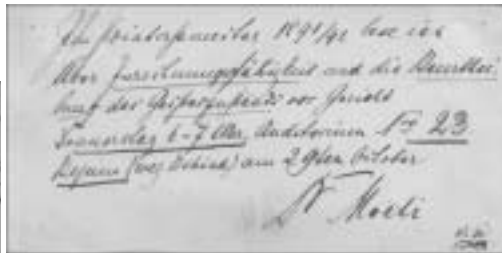 Im Wintersemester 1891/92 lese ich
über Zurechnungsfähigkeit und die Beurthei
lung des Geisteszustands vor Gericht
Donnerstag 6-7 Uhr, Auditorium No 23
Beginn am 29ten October
Dr Moeli